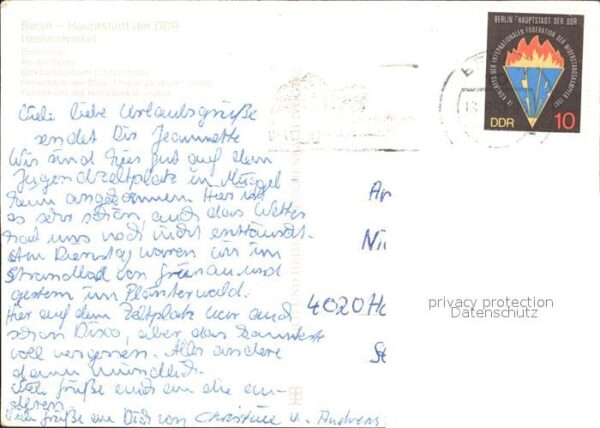 Berlin – Hauptstadt der DDR
Hessenwinkel
An der Spree
Viele liebe Urlaubsgrüße
sendet Dir Jeannette
Wir sind hier gut auf dem
Jugendzeltplatz in Müggel
heim angekommen. Hier ist
es sehr schön, auch das Wetter
hat uns noch nicht enttäuscht.
Am Dienstag waren wir im
Strandbad von Grünau und
gestern im Plänterwald.
Hier auf dem Zeltplatz war auch
schon Disco, aber das kannste
voll vergessen. Alles andere
dann mündlich.
Viele Grüße auch an die an-
deren.
Viele Grüße an Dich von Christine u. Andreas
4020 Ha
privacy protection
Datenschutz
BERLIN - HAUPTSTADT DER DDR
IX. KONGRESS DER INTERNATIONALEN FÖDERATION DER WIDERSTANDSKÄMPFER 1982
FIR
DDR 10